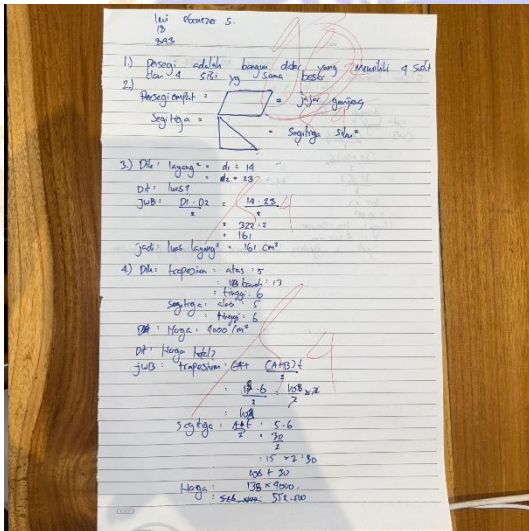 Levi ebenezer S.
13
8A3
1.) persegi adalah bangun datar yang memiliki 4 sudut
dan 4 sisi yg sama besar
2.)
Persegi empat = = jajar genjang
Segitiga = = Segitiga siku²
3.) Dik: layang² = d1 = 14
= d2 = 23
Dit: luas?
JWB: D1 . D2 = 14 . 23
2 2
= 322 : 2
= 161
jadi: luas layang² = 161 cm²
4.) Dik: trapesium: atas : 5
bawah : 13
: tinggi : 6
Segitiga: alas : 5
: tinggi : 6
Harga : 4000 /m²
Dit: Harga total?
JWB: trapesium: (A+B) t
2
: 18 . 6 : 108
2 2
: 108
Segitiga : A+t : 5.6
2 : 30
2
: 15 x 2 : 30
108 + 30
Harga : 138 x 4000
: 552.000